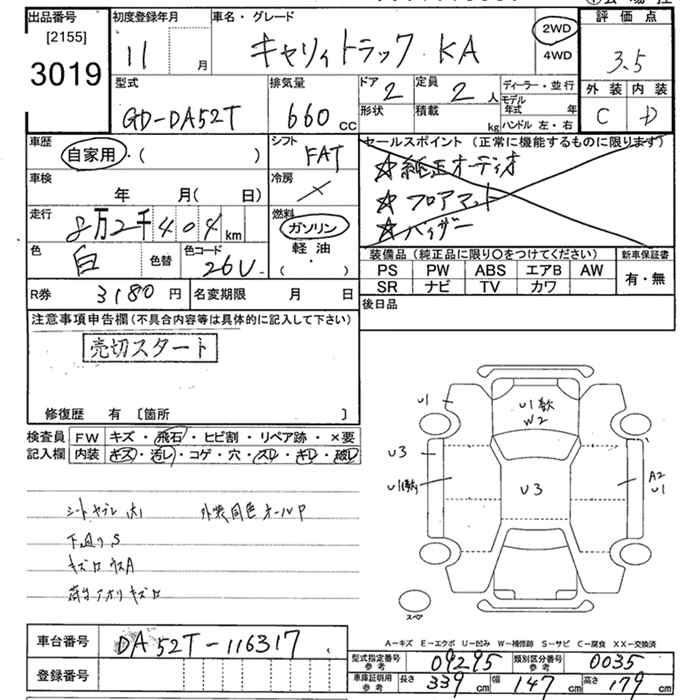 出品番号 [2155] 3019
初度登録年月 11 月
車名・グレード キャリィトラック KA
2WD
4WD
評価点 3.5
外装 内装
C D
型式 GD-DA52T
排気量 660 cc
ドア 2
定員 2 人
形状 積載 kg
ディーラー・並行
モデル年式 年
ハンドル 左・右
車歴 自家用・( )
シフト FAT
車検 年 月( 日)
冷房
走行 8万2千404 km
燃料 ガソリン
軽油
( ・ )
色 白 色替
色コード 26U
R券 3180 円
名変期限 月 日
セールスポイント (正常に機能するものに限ります)
☆純正オーディオ
☆フロアマット
☆バイザー
装備品(純正品に限り○をつけてください)
PS PW ABS エアB AW
SR ナビ TV カワ
新車保証書
有・無
後日品
注意事項申告欄(不具合内容等は具体的に記入して下さい)
売切スタート
修復歴 有 〔箇所 〕
検査員記入欄
FW キズ・飛石・ヒビ割・リペア跡・×要
内装 キズ・汚レ・コゲ・穴・スレ・キレ・破レ
外装同色オールP
下廻りS
U1
U1軟
W2
U3
U1軟
U3
A2
U1
スペア
A−キズ E−エクボ U−凹み W−補修跡 S−サビ C−腐食 XX−交換済
車台番号 DA52T-116317
登録番号
型式指定番号 参考 09295
類別区分番号 参考 0035
車庫証明用 参考 長さ 339 cm 幅 147 cm 高さ 179 cm